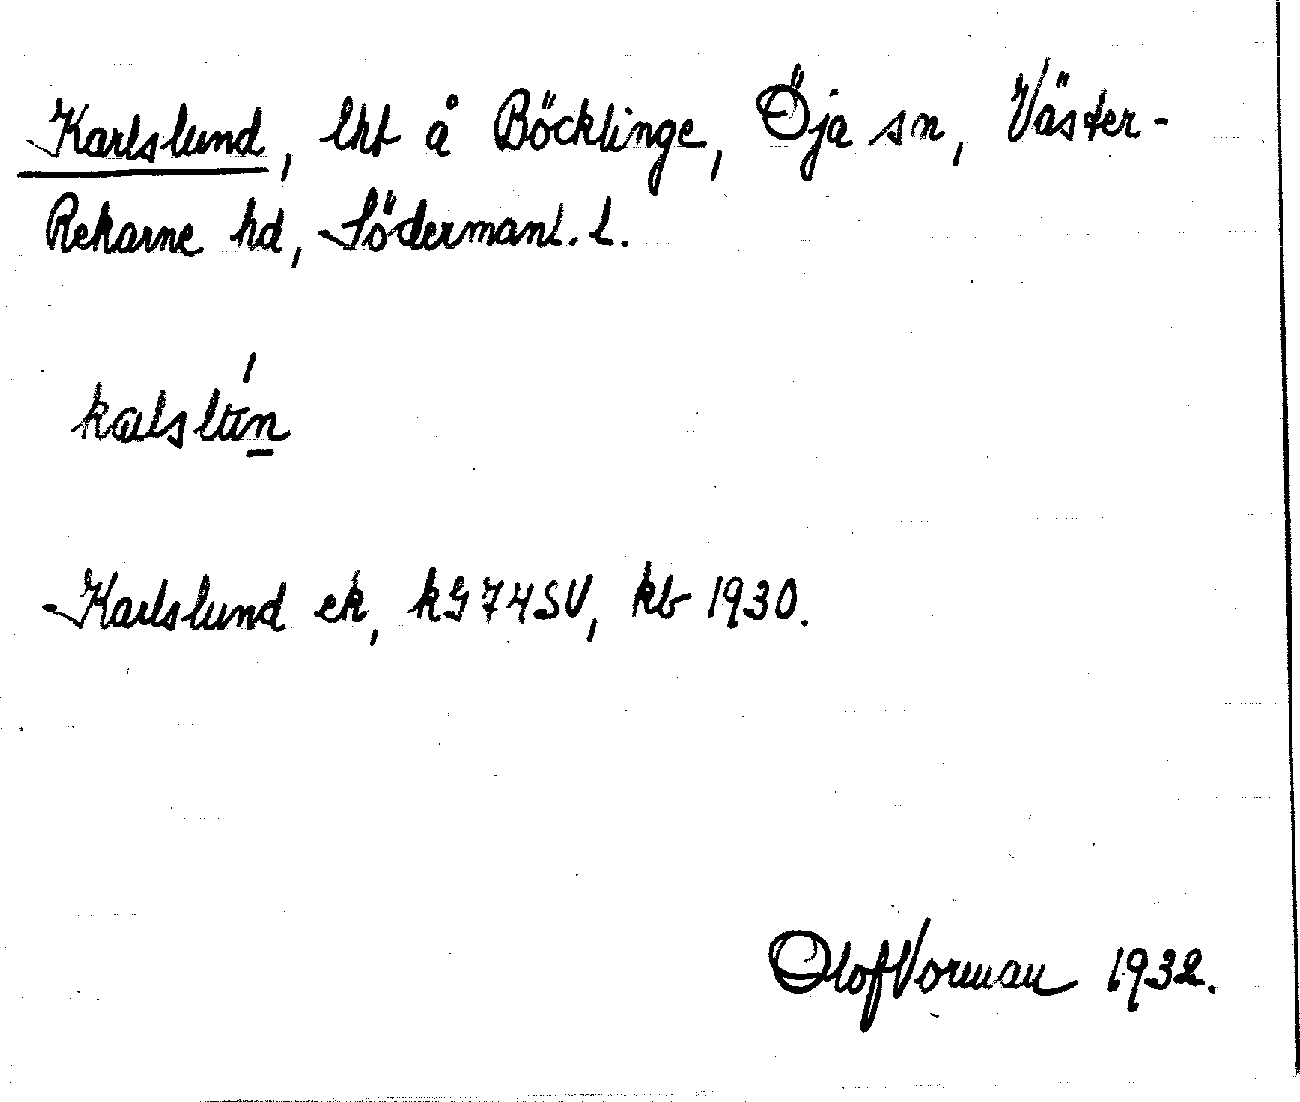 Karlslund, lht å Böcklinge, Öja sn, Väster-
Rekarne hd, Södermanl. l.
kalslún
Karlslund ek, kG74SV, kb 1930.
Olof Vorman 1932.